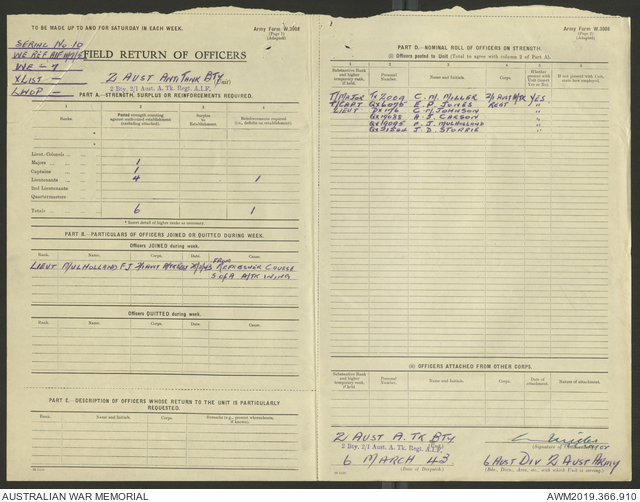 TO BE MADE UP TO AND FOR SATURDAY IN EACH WEEK.
Army Form W.3008
(Page 1)
(Adapted)
SERIAL No 10
WE -
X LIST -
LWOP -
FIELD RETURN OF OFFICERS
2 AUST ANTI TANK BTY (Unit)
2 Bty, 2/1 Aust. A. Tk. Regt. A.I.F.
PART A.—STRENGTH, SURPLUS OR REINFORCEMENTS REQUIRED.
1 2 3 4
Ranks.
Posted strength counting against authorized establishment (excluding attached).
Surplus to Establishment.
Reinforcements required (i.e., deficits on establishment)
Lieut.-Colonels
Majors 1
Captains 1
Lieutenants 4 1
2nd Lieutenants
Quartermasters
Totals 6 1
* Insert detail of higher ranks as necessary.
PART B.—PARTICULARS OF OFFICERS JOINED OR QUITTED DURING WEEK.
Officers JOINED during week.
Rank. Name. Corps. Date. Cause.
LIEUT MULHOLLAND F J FROM REFRESHER COURSE
S OF A A/TK WING
Officers QUITTED during week.
Rank. Name. Corps. Date. Cause.
PART C.—DESCRIPTION OF OFFICERS WHOSE RETURN TO THE UNIT IS PARTICULARLY REQUESTED.
Rank. Name and Initials. Corps. Remarks (e.g., present whereabouts, if known).
Army Form W.3008
(Page 2)
(Adapted)
PART D.—NOMINAL ROLL OF OFFICERS ON STRENGTH.
(i) Officers posted to Unit (Total to agree with column 2 of Part A).
1 2 3 4 5 6
Substantive Rank and higher temporary rank, if held
Personal Number.
Name and Initials.
Corps.
Whether present with Unit (insert Yes or No).
If not present with Unit, state how employed.
T/MAJOR C. M. MILLER 2/1 AUST A/TK YES
T/CAPT E. P. JONES REGT "
LIEUT C. M. JOHNSON "
A. J. CARSON "
F. J. MULHOLLAND "
J. D. STORRIE "
(ii) OFFICERS ATTACHED FROM OTHER CORPS.
Substantive Rank and higher temporary rank, if held
Personal Number.
Name and Initials.
Corps.
Date of attachment.
Nature of attachment.
2 AUST A. TK BTY
2 Bty, 2/1 Aust. A. Tk. Regt. A.I.F.
6 MARCH 43
(Date of Despatch.)
6 AUST DIV 2 AUST ARMY
(Bde., Divn., Area, etc., with which Unit is serving.)
AUSTRALIAN WAR MEMORIAL
AWM2019.366.910